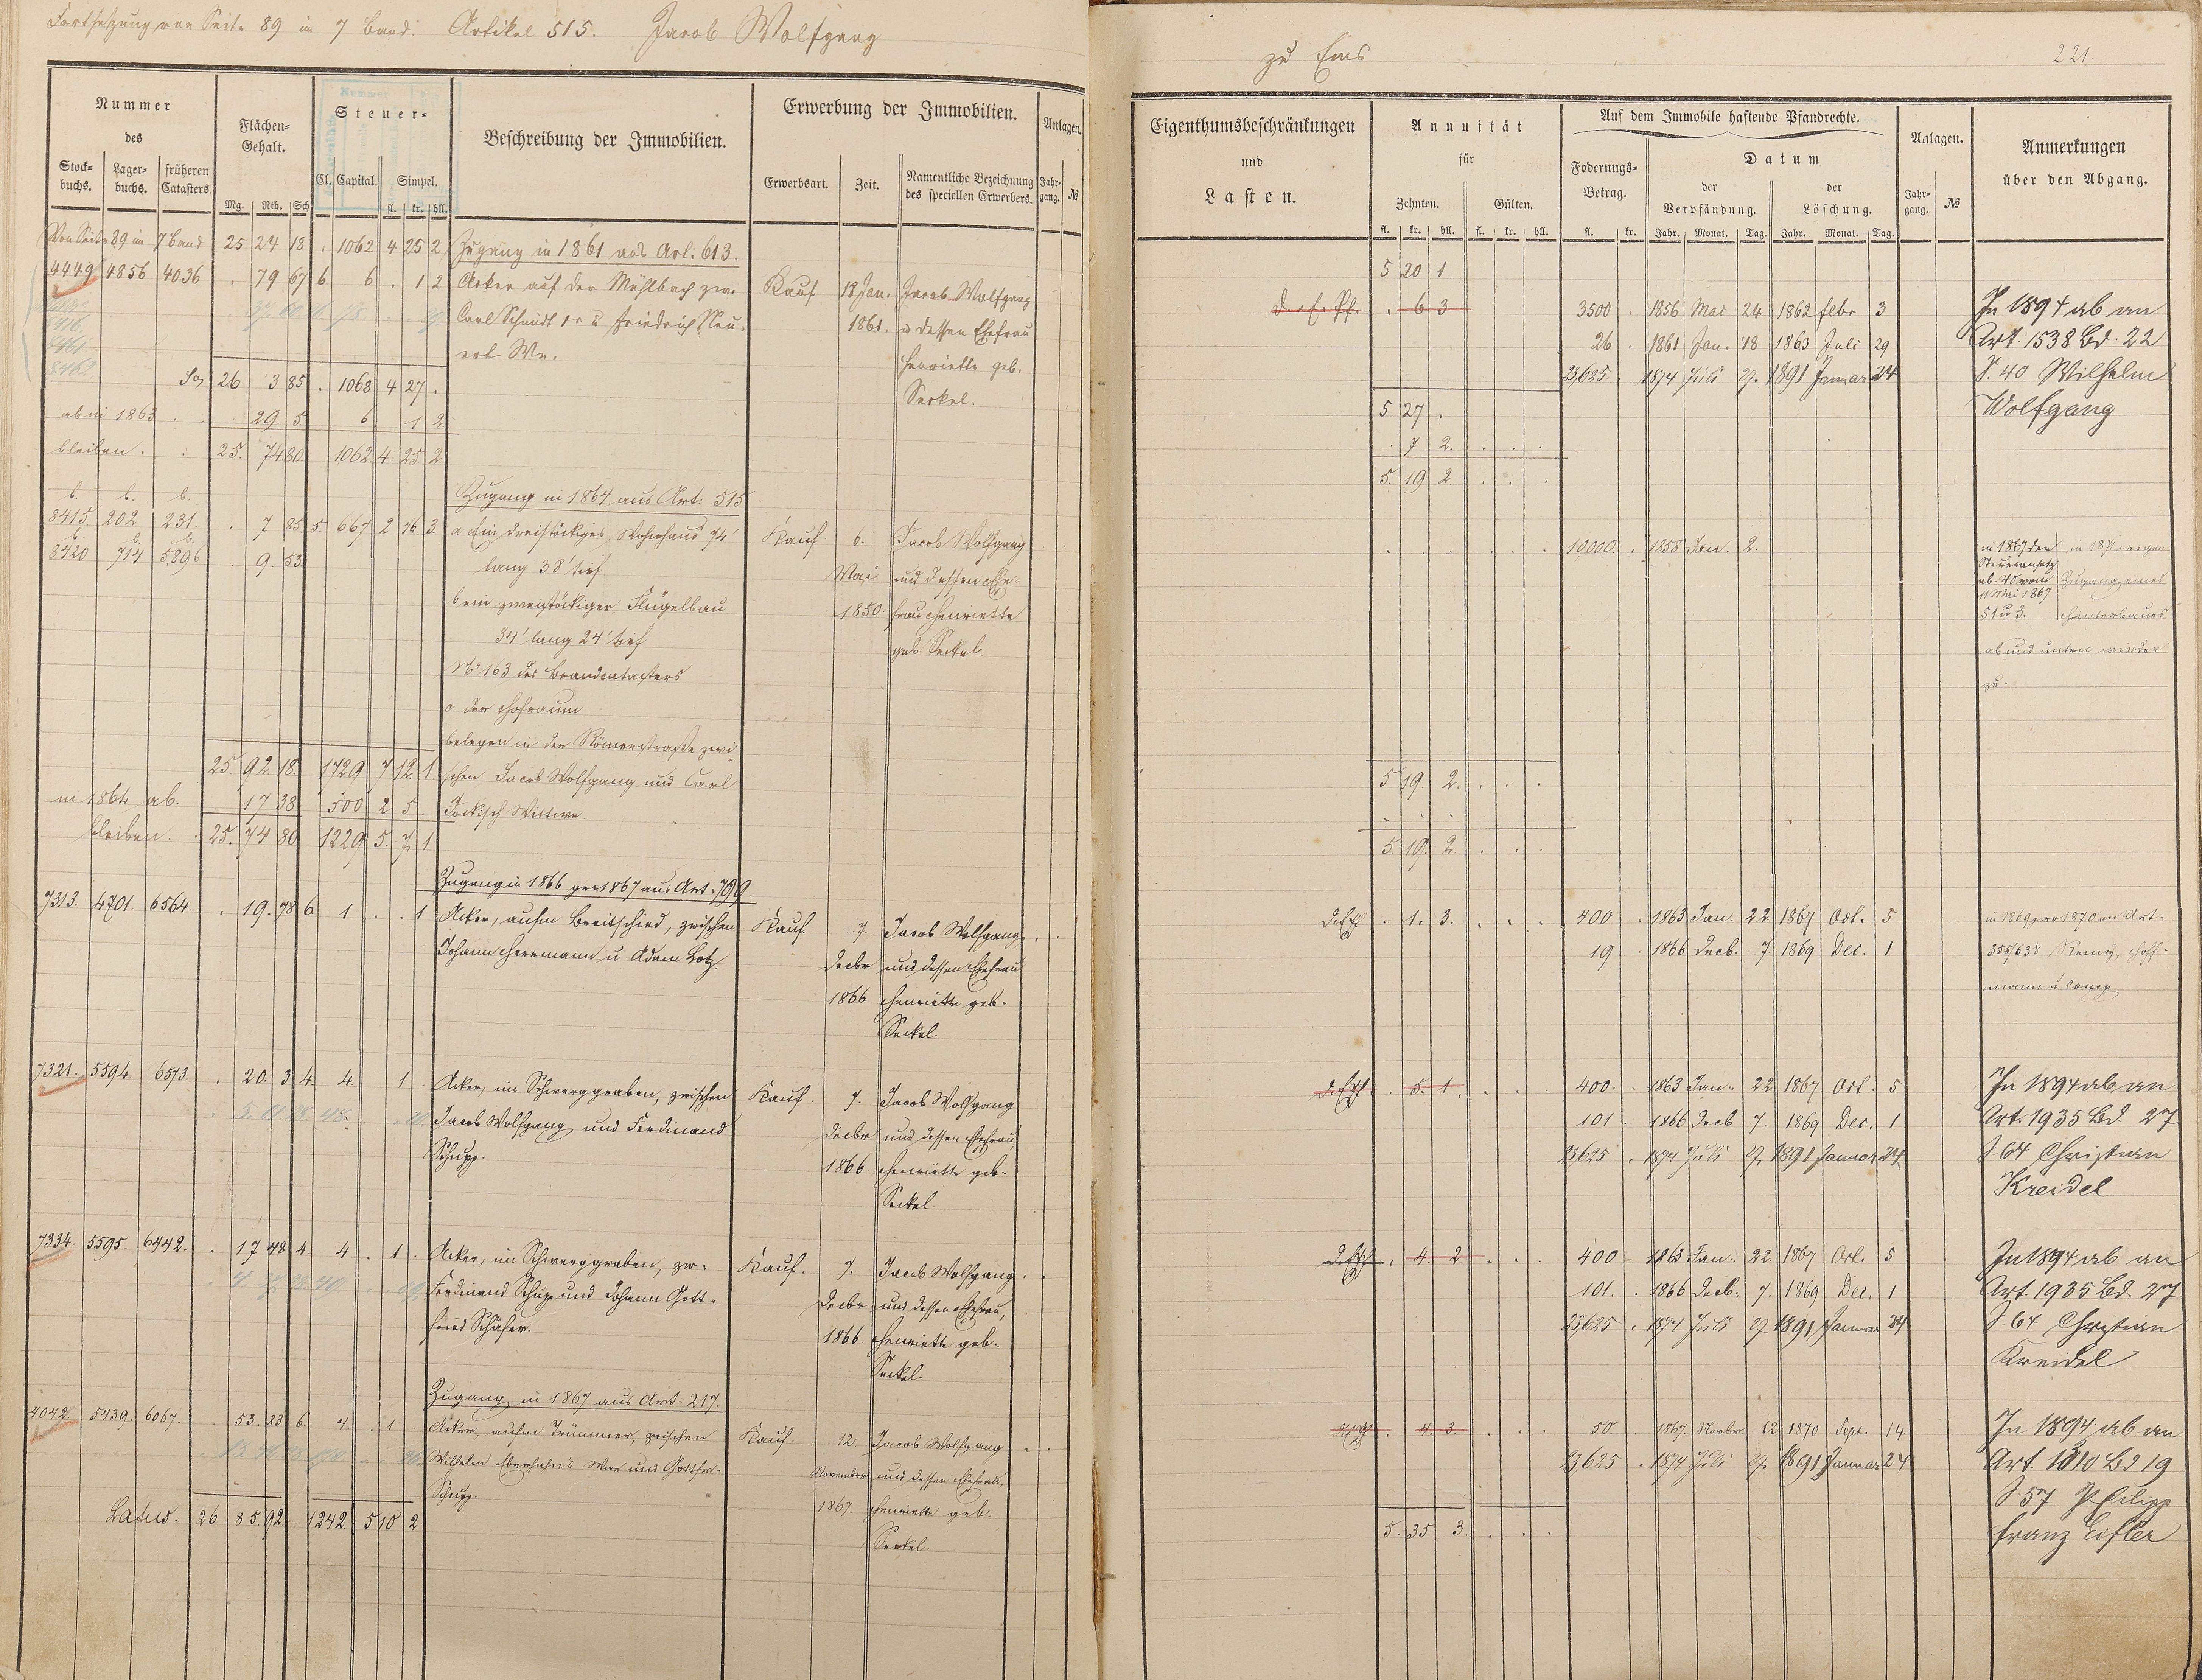 Fortsetzung von Seite 89 in 7 Band. Artikel 515. Jacob Wolfgang
zu Ems
221.
Nummer
des
Stock-
buchs.
Lager-
buchs.
früheren
Catasters.
Flächen-
Gehalt.
Mg. Rth. Sch
Steuer-
Cl. Capital. Simpel.
fl. kr. hll.
Beschreibung der Immobilien.
Erwerbung der Immobilien.
Erwerbsart. Zeit.
Namentliche Bezeichnung
des speciellen Erwerbers.
Anlagen.
Jahr-
gang. №
Eigenthumsbeschränkungen
und
Lasten.
Annuität
für
Zehnten. Gülten.
fl. kr. hll. fl. kr. hll.
Auf dem Immobile haftende Pfandrechte.
Foderungs-
Betrag.
fl. kr.
Datum
der
Verpfändung.
der
Löschung.
Jahr. Monat. Tag. Jahr. Monat. Tag.
Anlagen.
Jahr-
gang. №
Anmerkungen
über den Abgang.
Von Seite 89 im 7 Band 25 24 18 . 1062 4 25 2 Zugang in 1861 aus Art: 613.
5 20 1
4449 4856 4036 . 79 67 6 6 . 1 2 Acker auf der Mühlbach zw.
Carl Schmidt 1r u Friedrich Neu-
ert We.
Kauf 18 Jan.
1861.
Jacob Wolfgang
u dessen Ehefrau
Henriette geb.
Seckel.
. 6 3
3500 . 1856 Mai 24 1862 febr 3
26 . 1861 Jan. 18 1863 Juli 29
23,625 . 1874 Juli 27. 1891 Januar 24
In 1894 ab an
Art. 1538 Bd. 22
S. 40 Wilhelm
Wolfgang
Sa 26 3 85 . 1068 4 27 .
5 27 .
ab in 1863 . 29 5 6 1 2
. 7 2.
bleiben. : 25. 74 80 1062 4 25 2
5. 19 2
Zugang in 1864 aus Art: 515
b. b. b.
8415 202 231. . 7 85 5. 667 2 46 3.
b. b. b.
8420 714 5896 9 53
a Ein dreistöckiges Wohnhaus 74'
lang 38' tief
b ein zweistöckiger Flügelbau
34' lang 24' tief
No 163 des Brandcatasters
c der Hofraum
belegen in der Römerstraße zwi
schen Jacob Wolfgang und Carl
Jockisch Wittwe.
Kauf 6.
Mai
1850.
Jacob Wolfgang
und dessen Ehe-
frau Henriette
geb Seckel.
10,000 . 1858 Jan. 2.
in 1867 der
Steueransatz
ab 40 vom
11 Mai 1867
51 u 3.
in 1871 wegen
Zugang eines
Hinterbaues
ab und unten wieder
zu.
25. 92 18. 1729 7 12. 1.
5 19. 2.
in 1864 ab. 17 38 500 2 5.
bleiben. 25. 74 80 1229 5. 7. 1
5. 19. 2.
Zugang in 1866 per 1867 aus Art: 709
7313. 4701. 6564. . 19. 78 6. 1 . . 1 Acker, aufm Breitschied, zwischen
Johann Herrmann u. Adam Lotz.
Kauf 7
Decbr
1866
Jacob Wolfgang
und dessen Ehefrau
Henriette geb.
Seckel.
. 1. 3.
400 . 1863 Jan. 22 1867 Oct. 5
19 . 1866 Decb. 7 1869 Dec. 1
in 1869 pro 1870 an Art.
355/638 Remy, Hoff-
mann u Comp
7321. 5594. 6573. . 20. 3 4. 4. 1 . Acker, im Schwerzgraben, zwischen
Jacob Wolfgang und Ferdinand
Schupp.
Kauf. 7.
Decbr
1866
Jacob Wolfgang
und dessen Ehefrau
Henriette geb.
Seckel.
. 5. 1.
400. 1863 Jan. 22 1867 Oct. 5
101 1866 Decb 7. 1869 Dec. 1
23,625 . 1874 Juli 27. 1891 Januar 24
In 1894 ab an
Art. 1935 Bd. 27
S. 64 Christian
Kreidel
7334. 5595. 6442. . 17 48 4. 4 . 1 . Acker, im Schwerzgraben, zw.
Ferdinand Schupp und Johann Gott-
fried Schäfer.
Kauf. 7.
Decbr
1866.
Jacob Wolfgang
und dessen Ehefrau,
Henriette geb.
Seckel.
. 4. 2
400 1863 Jan. 22. 1867 Oct. 5
101. . 1866 Decb. 7. 1869 Dec. 1
23,625 . 1874 Juli 27 1891 Januar 24
In 1894 ab an
Art. 1935 Bd. 27
S. 64 Christian
Kreidel
Zugang in 1867 aus Art: 217.
4042. 5439. 6067. 53. 83 6. 4. . 1 Acker, aufm Trümmer, zwischen
Wilhelm Eberhahn's Wwe und Gottfr.
Schupp.
Kauf 12.
November
1867
Jacob Wolfgang
und dessen Ehefrau,
Henriette geb.
Seckel.
. 4. 3.
50. 1867. Novbr. 12 1870 Sept. 14
23,625 . 1874 Juli 27. 1891 Januar 24
In 1894 ab an
Art. 1310 Bd 19
S. 57 Philipp
Franz Eisler
Latus. 26 85. 92 1242 5 10 2
5. 35 3.